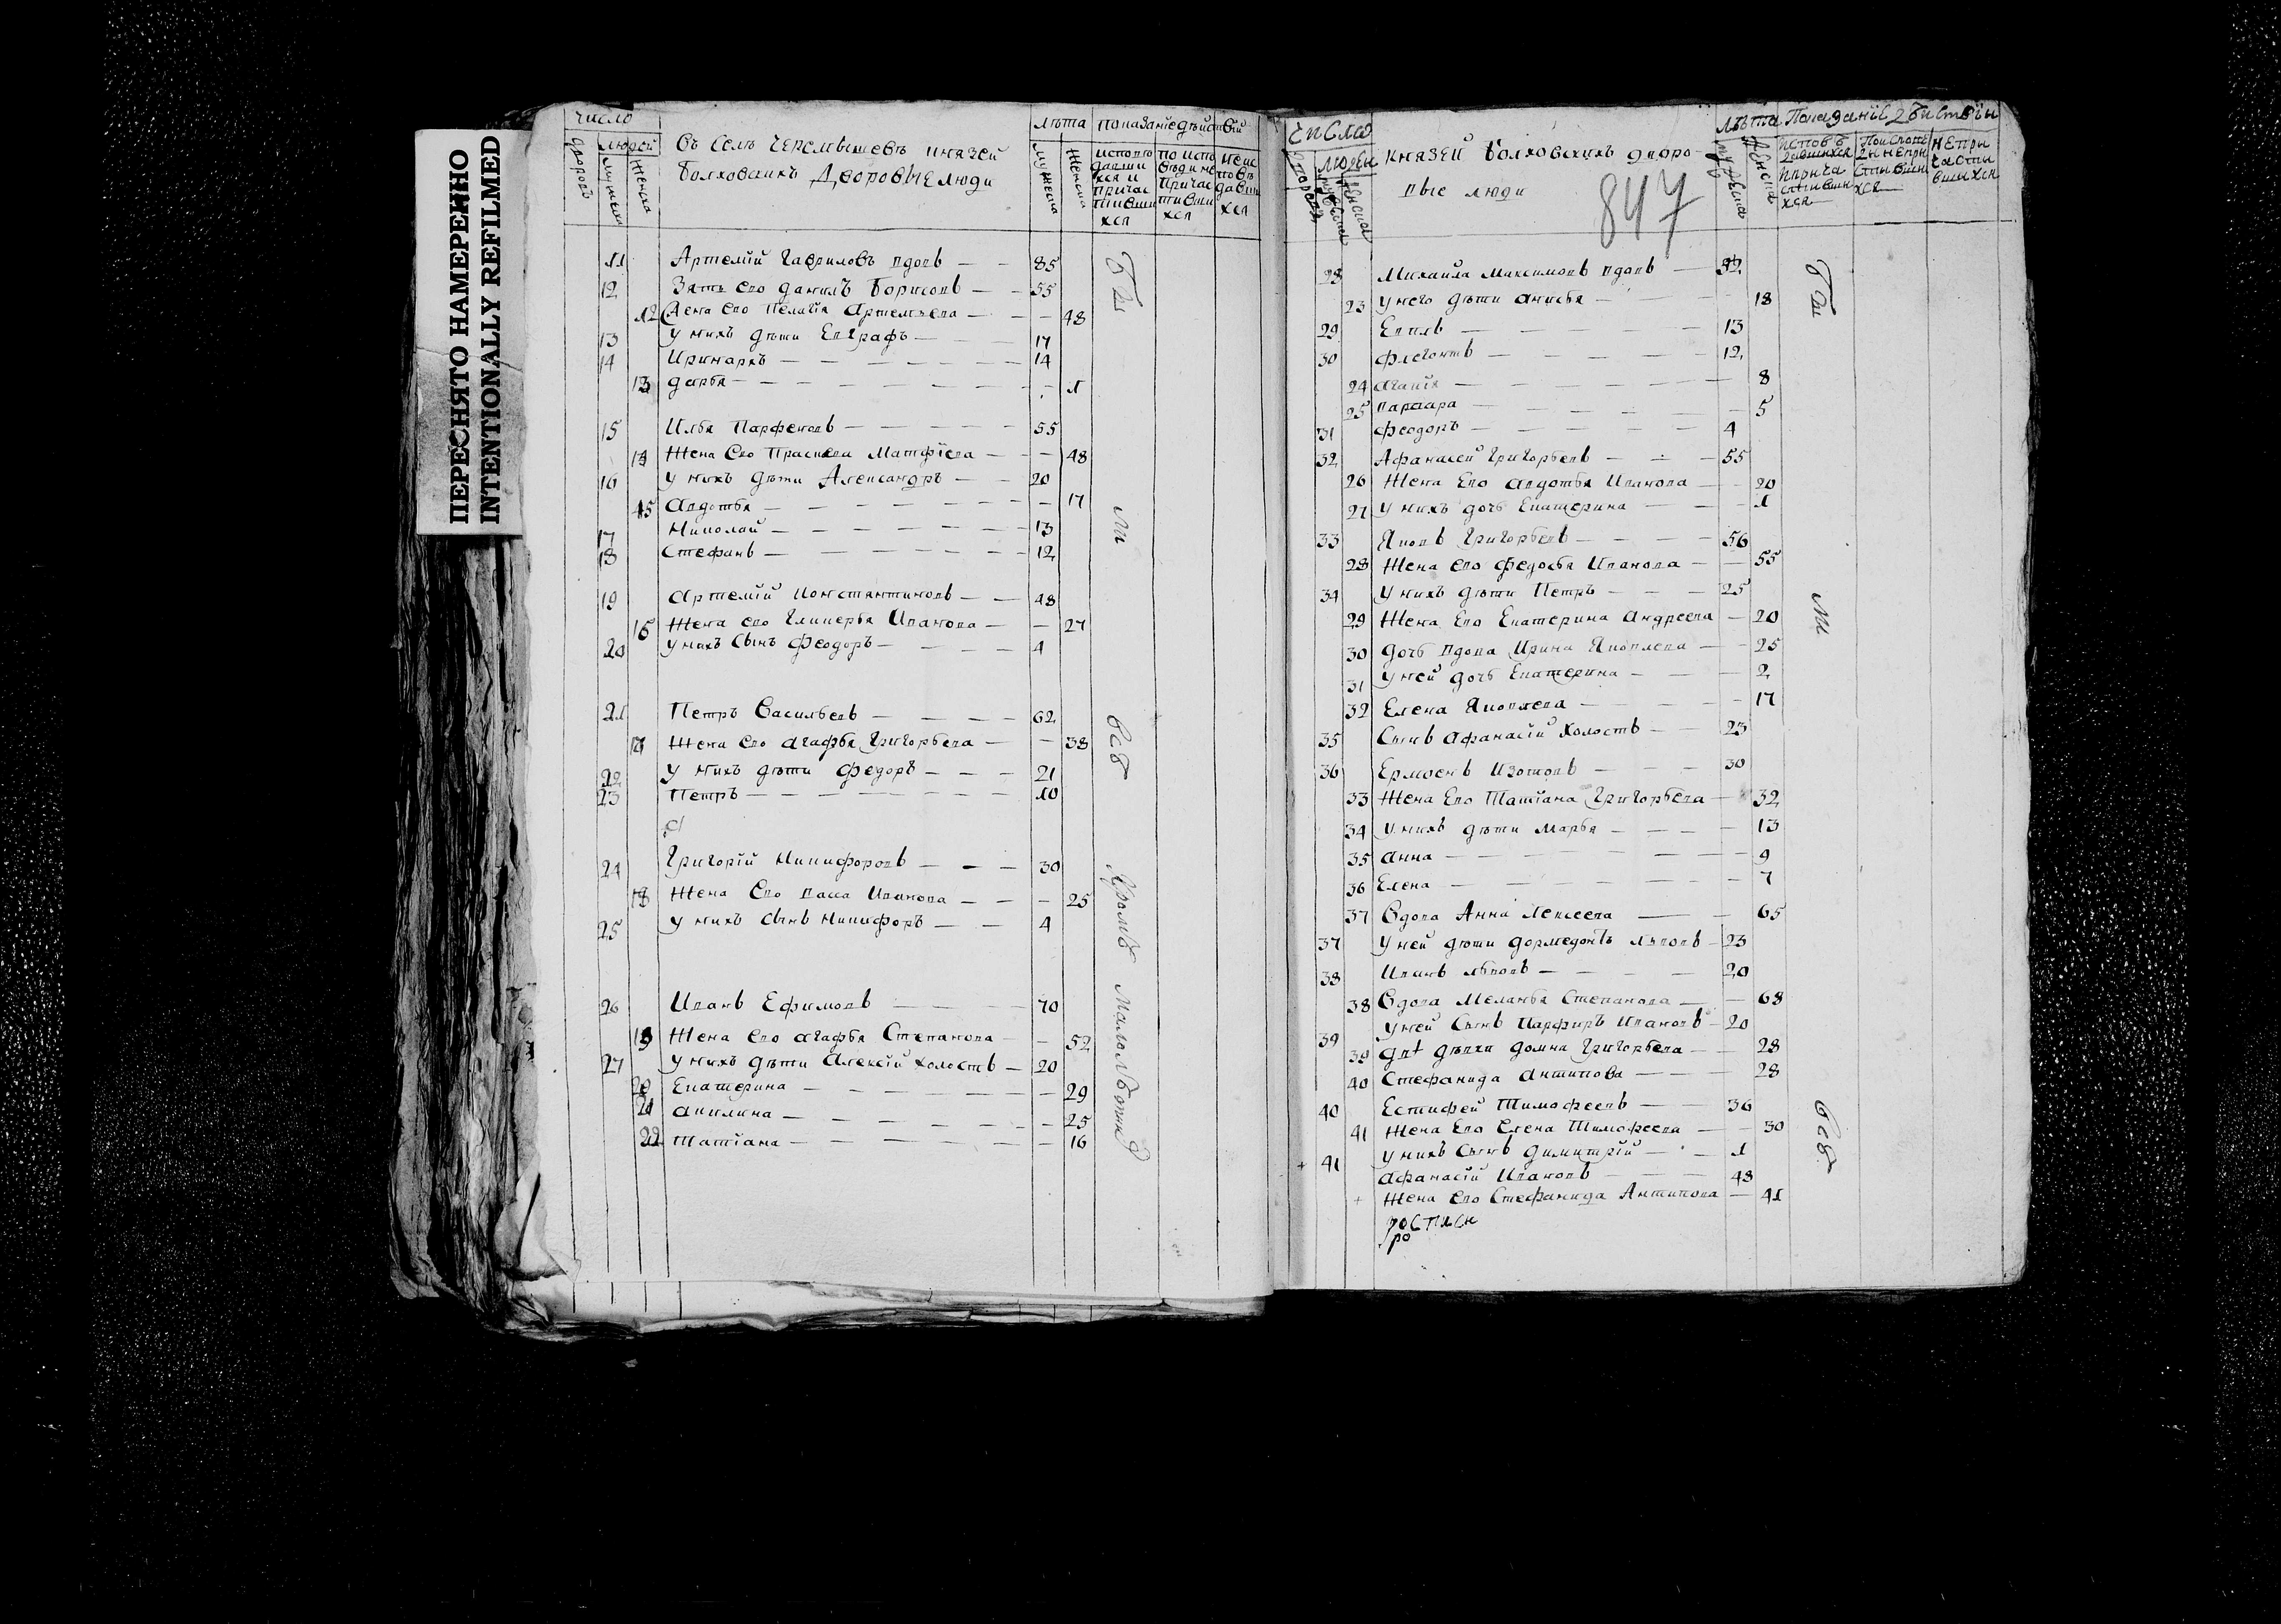 ПЕРЕСНЯТО НАМЕРЕННО
INTENTIONALLY REFILMED
число
людей
дворовъ
мужеска
женска
въ селѣ Черемышевѣ князей
Волховскихъ Дворовые люди
лѣта
мужеска
женска
показание действий
исповѣдавшихся и причастившихся
по исповѣди не причастившихся
неисповѣдавшихся
11 Артемій Гавриловъ вдовъ — — 85
12 Зять его Данилъ Борисовъ — — 55
12 Жена его Пелагія Артемьева — — — 48
13 у нихъ дѣти Евграфъ — — — 17
14 Иринархъ — — — — — — 14
13 Дарья — — — — — — — 1
15 Илья Парфеновъ — — — — — 55
14 Жена его Прасковья Матфіева — — — 48
16 у нихъ дѣти Александръ — — 20
15 Авдотья — — — — — — — — 17
17 Николай — — — — — — — 13
18 Стефанъ — — — — — — — 12
19 Артемій Константиновъ — — 48
16 Жена его Гликерья Иванова — — 27
20 у нихъ сынъ Феодоръ — — — — 4
21 Петръ Васильевъ — — — — 62
17 Жена его Агафья Григорьева — — 38
22 у нихъ дѣти Федоръ — — — 21
23 Петръ — — — — — — — 10
24 Григорій Никифоровъ — — — 30
18 Жена его Васса Иванова — — — 25
25 у нихъ сынъ Никифоръ — — 4
26 Иванъ Ефимовъ — — — 70
19 Жена его Агафья Степанова — — 52
27 у нихъ дѣти Алексій холостъ — 20
20 Екатерина — — — — — — 29
21 Акилина — — — — — — — 25
22 Татіана — — — — — — — 16
Бы
ли
всѣ
кромѣ
малолѣтныхъ
Число
людей
князей Волховскихъ дворо-
вые люди
847
лѣта
28 Михайла Максимовъ вдовъ — 32
23 у него дѣти Анисья — — — 18
29 Евплъ — — — — — — 13
30 Флегонтъ — — — — — 12
24 Агапія — — — — — — — 8
25 Варвара — — — — — — 5
31 Феодоръ — — — — — — 4
32 Афанасей Григорьевъ — — — 55
26 Жена его Авдотья Иванова — — 20
27 у нихъ дочь Екатерина — — — 1
33 Яковъ Григорьевъ — — — — 56
28 Жена его Федосья Иванова — — 55
34 у нихъ дѣти Петръ — — — 25
29 Жена его Екатерина Андреева — 20
30 дочь вдова Ирина Яковлева — — 25
31 у ней дочь Екатерина — — — 2
32 Елена Яковлева — — — — — 17
35 Сынъ Афанасій холостъ — — 23
36 Ермоенъ Изотовъ — — — 30
33 Жена его Татіана Григорьева — 32
34 у нихъ дѣти Марья — — — — 13
35 Анна — — — — — — — — 9
36 Елена — — — — — — — 7
37 Вдова Анна Лексеева — — 65
37 у ней дѣти Дормедонтъ Львовъ — 23
38 Иванъ Львовъ — — — — 20
38 Вдова Меланья Степанова — — 68
39 у ней сынъ Парфиръ Ивановъ — 20
39 двѣ дѣвки Домна Григорьева — — 28
40 Стефанида Антипова — — — 28
40 Естифей Тимофеевъ — — 36
41 Жена его Елена Тимофеева — — 30
41 у нихъ сынъ Димитрій — — 1
Афанасій Ивановъ — — — 43
Жена его Стефанида Антипова — 41
ростиси
ро
Бы
ли
всѣ